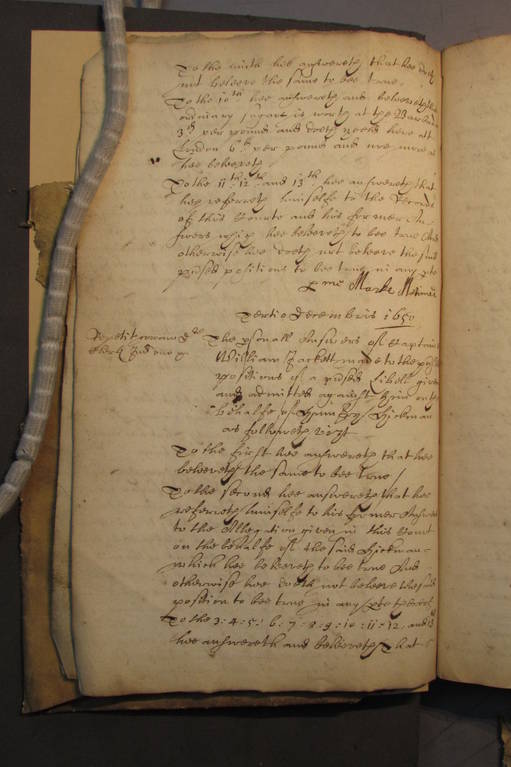 To the ninth hee answereth that hee doth
not beleeve the same to bee true.
To the 10th hee answereth and beleeveth that
ordinary sugars is worth at the Barbados
3d per pound and doeth yeeld here at
London 6d per pound and noe more as
hee beleeveth
To the 11th 12th and 13th hee answereth that
hee referreth himselfe to the Records
of this Courte and his former An:
swers which hee beleeveth to bee true And
otherwise hee doeth not beleeve the said
positions to bee true in any parte
per me Marke
Tertio Decembris 1650
The personall Answers of Captaine
William Hackett made to the
positions of a Libell given
and admitted against him on the
behalfe of Humfrey Hickman
as followeth vizt
To the first hee answereth that hee
beleeveth the same to bee true /
To the second hee answereth that hee
referreth himselfe to his former Answers
to the Allegation given in this Court
on the behalfe of the said Hickman
which hee beleeveth to bee true And
otherwise hee doeth not beleeve the said
position to bee true in any parte thereof
To the 3: 4: 5: 6: 7: 8: 9: 10: 11: 12 and 13
hee answereth and beleeveth That